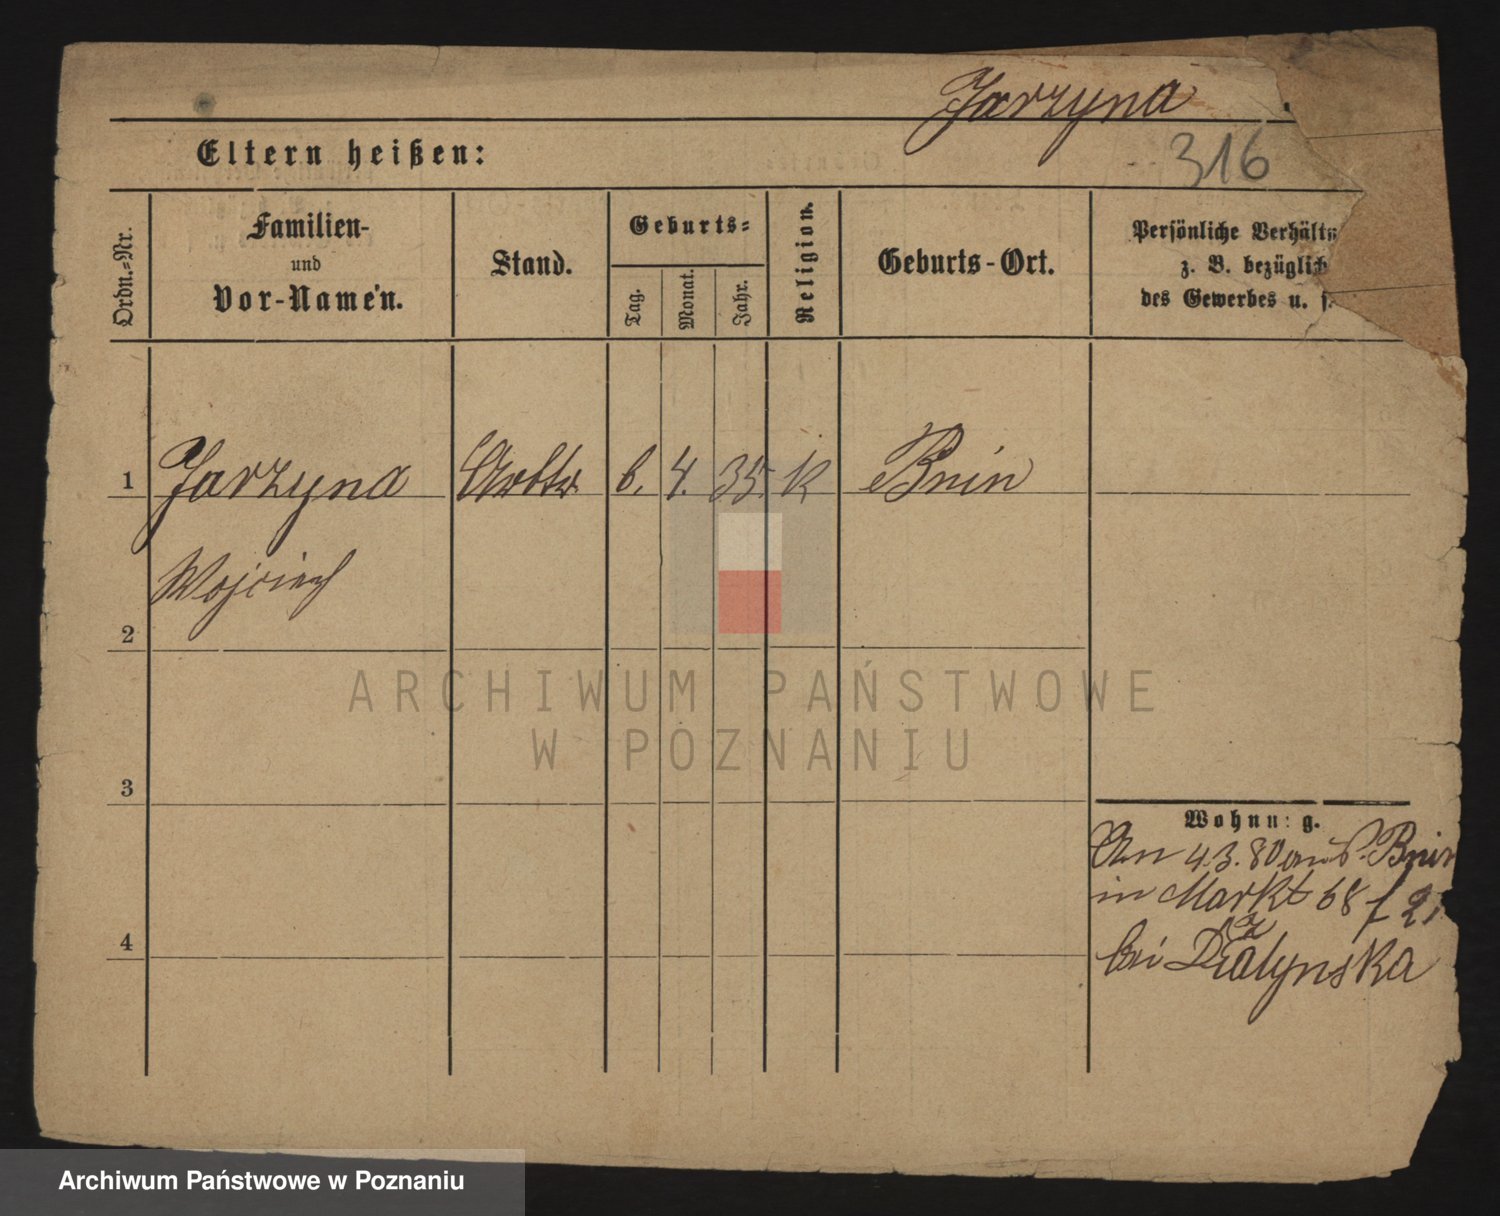 Jarzyna
316
Eltern heißen:
Ordn.-Nr.
Familien-
und
Vor-Namen.
Stand.
Geburts-
Tag.
Monat.
Jahr.
Religion.
Geburts-Ort.
Persönliche Verhältn
z. B. bezüglich
des Gewerbes u. s.
1 Jarzyna Arbtr 6. 4. 35. K Bnin
Wojciech
2
3
4
Wohnung.
Am 4.3.80 aus Bnin
in Markt 68
bei Działynska
ARCHIWUM PAŃSTWOWE
W POZNANIU
Archiwum Państwowe w Poznaniu